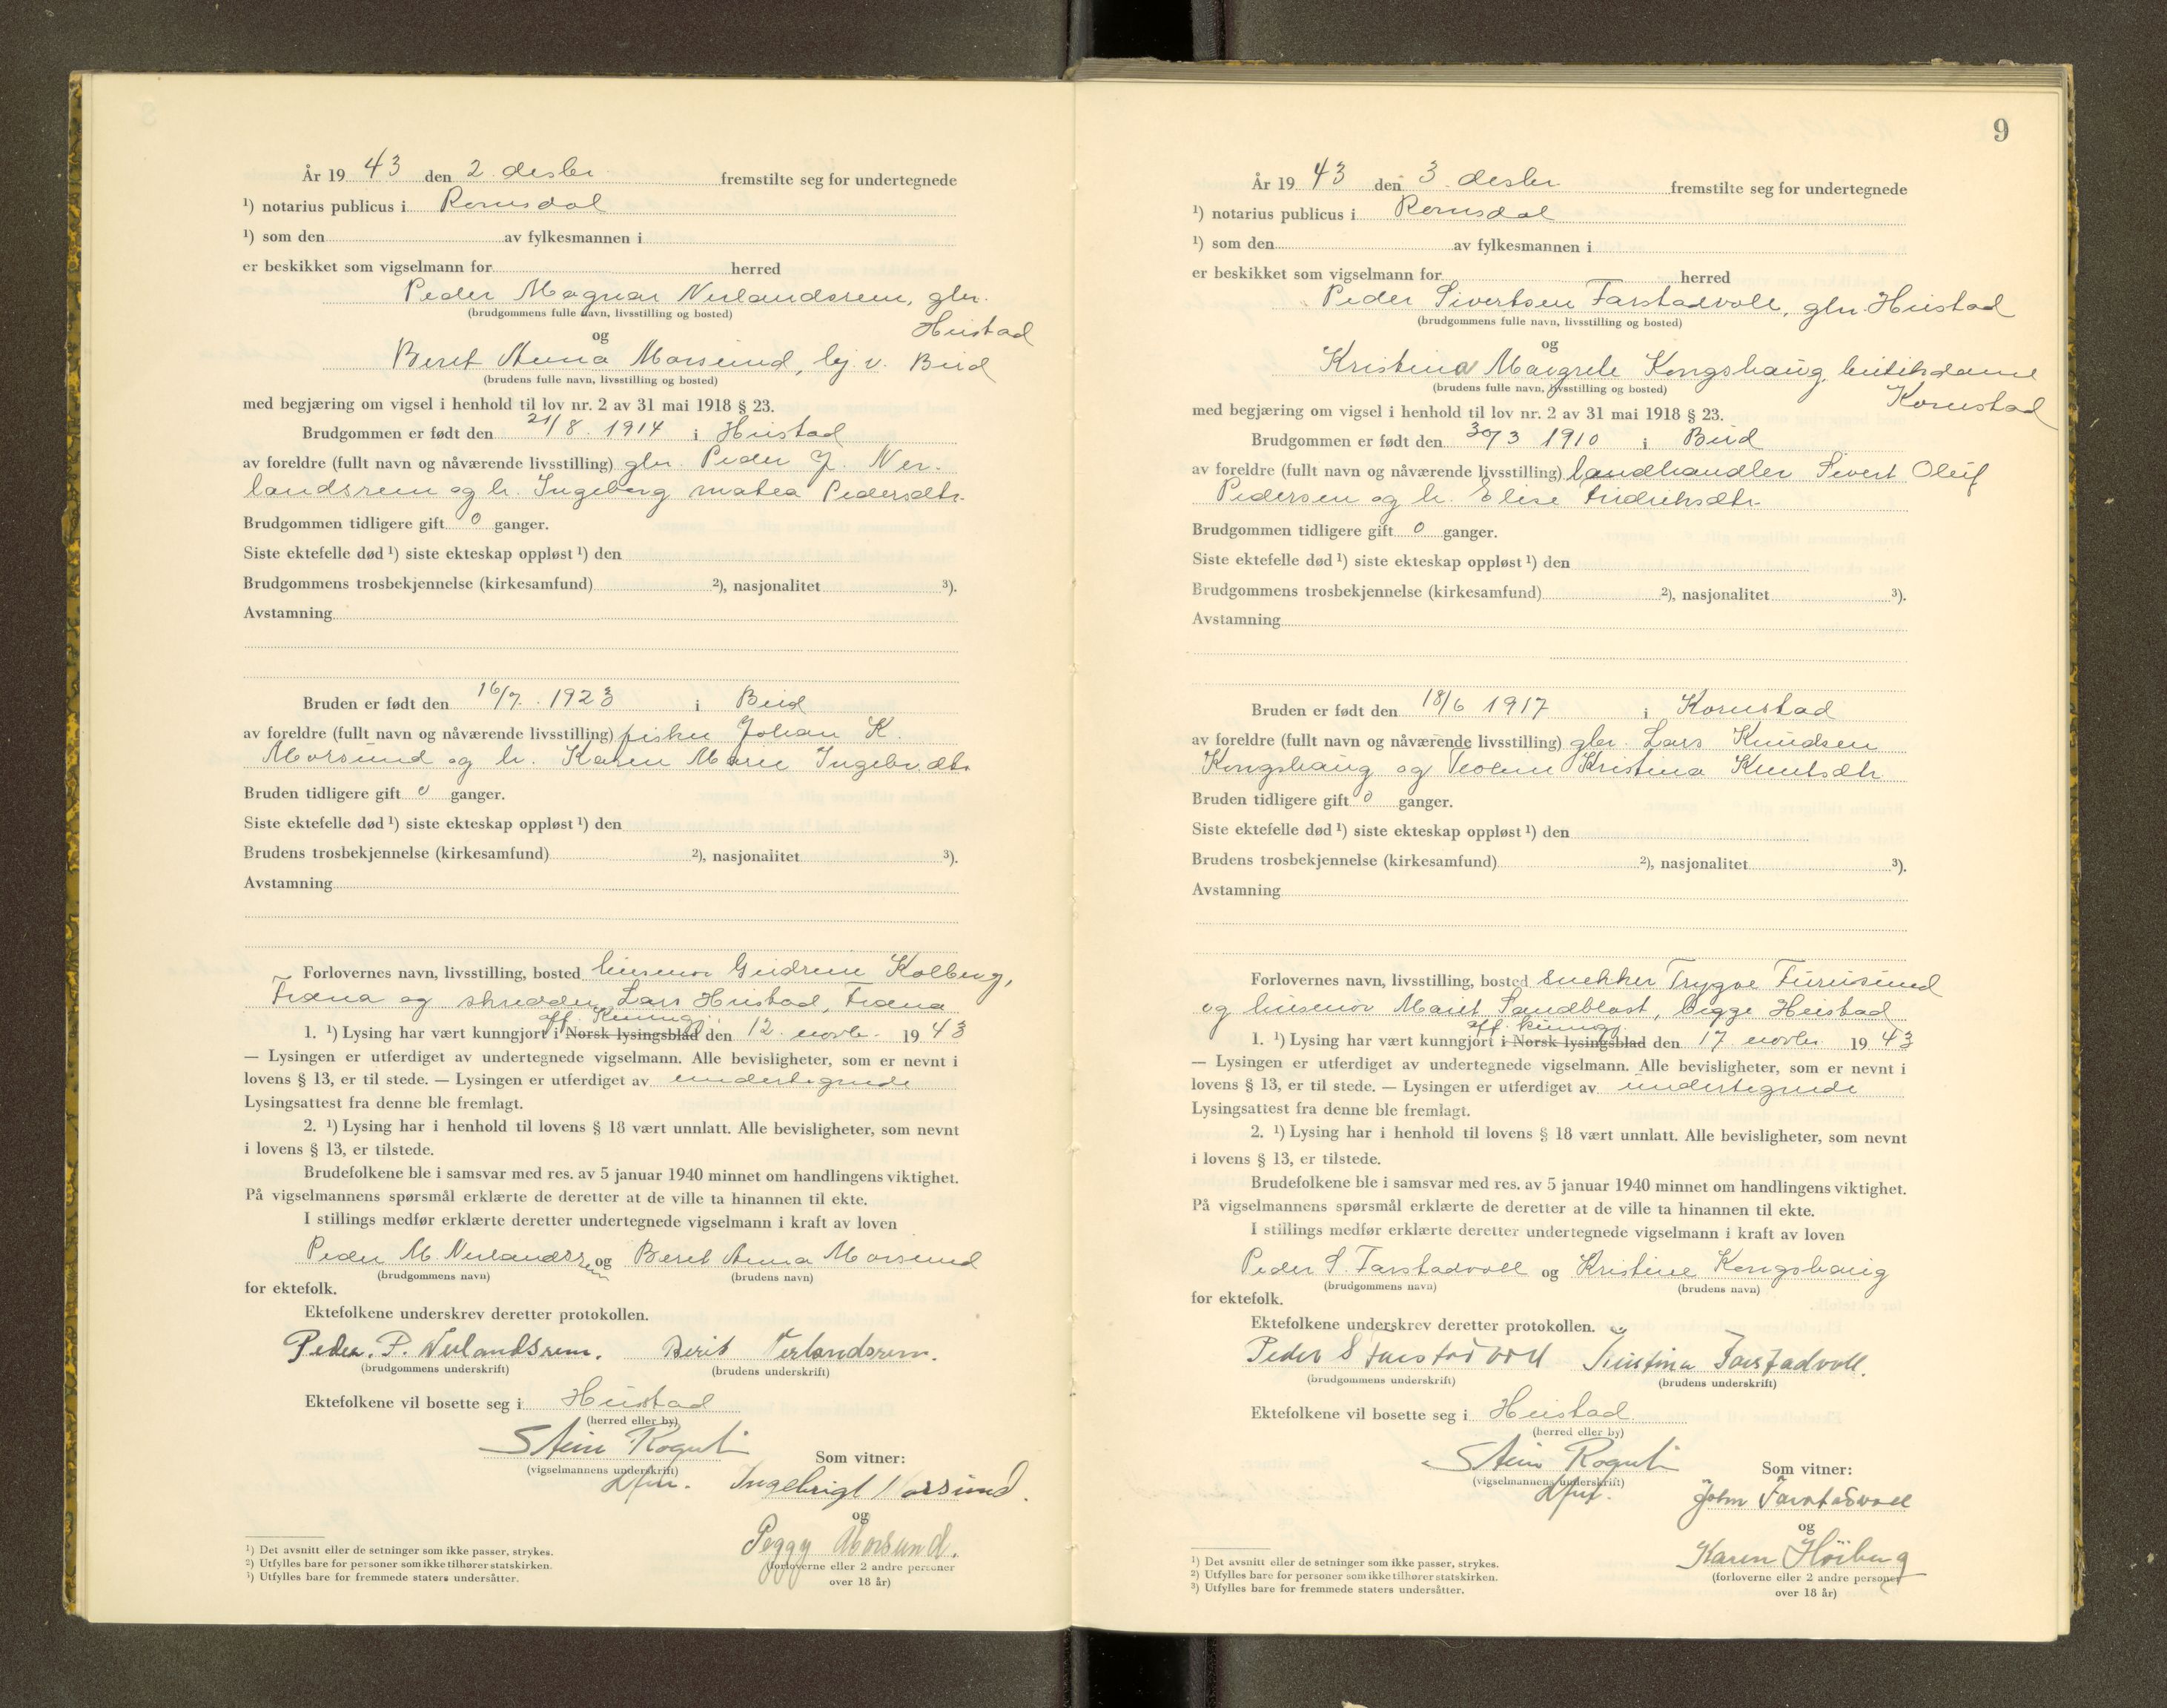 År 19 43 den 2. desbr fremstilte seg for undertegnede
¹) notarius publicus i Romsdal
¹) som den av fylkesmannen i
er beskikket som vigselmann for herred
Peder Magnar Nerlandsrem, gbr.
(brudgommens fulle navn, livsstilling og bosted)
Hustad
og
Beret Anna Morsund, hj. v. Bud
(brudens fulle navn, livsstilling og bosted)
med begjæring om vigsel i henhold til lov nr. 2 av 31 mai 1918 § 23.
Brudgommen er født den 21/8. 1914 i Hustad
av foreldre (fullt navn og nåværende livsstilling) gbr. Peder J. Ner-
landsrem og h. Ingeborg Matea Pedersdtr.
Brudgommen tidligere gift 0 ganger.
Siste ektefelle død ¹) siste ekteskap oppløst ¹) den
Brudgommens trosbekjennelse (kirkesamfund) ²), nasjonalitet ³).
Avstamning
Bruden er født den 16/7. 1923 i Bud
av foreldre (fullt navn og nåværende livsstilling) fisker Johan K.
Morsund og h. Karen Marie Ingebr.dtr
Bruden tidligere gift 0 ganger.
Siste ektefelle død ¹) siste ekteskap oppløst ¹) den
Brudens trosbekjennelse (kirkesamfund) ²), nasjonalitet ³).
Avstamning
Forlovernes navn, livsstilling, bosted husmor Gudrun Kolberg,
Fræna og skredder Lars Hustad, Fræna
off. kunngj.
1. ¹) Lysing har vært kunngjort i Norsk lysingsblad den 12. novbr. 19 43
— Lysingen er utferdiget av undertegnede vigselmann. Alle bevisligheter, som er nevnt i
lovens § 13, er til stede. — Lysingen er utferdiget av undertegnede
Lysingsattest fra denne ble fremlagt.
2. ¹) Lysing har i henhold til lovens § 18 vært unnlatt. Alle bevisligheter, som nevnt
i lovens § 13, er tilstede.
Brudefolkene ble i samsvar med res. av 5 januar 1940 minnet om handlingens viktighet.
På vigselmannens spørsmål erklærte de deretter at de ville ta hinannen til ekte.
I stillings medfør erklærte deretter undertegnede vigselmann i kraft av loven
Peder M. Nerlandsrem og Beret Anna Morsund
(brudgommens navn) (brudens navn)
for ektefolk.
Ektefolkene underskrev deretter protokollen.
Peder. P. Nerlandsrem. Berit Nerlandsrem.
(brudgommens underskrift) (brudens underskrift)
Ektefolkene vil bosette seg i Hustad
(herred eller by)
Stein Rognli
(vigselmannens underskrift)
Som vitner:
dfm. Ingebrigt Morsund.
og
Peggy Morsund.
(forloverne eller 2 andre personer
over 18 år)
¹) Det avsnitt eller de setninger som ikke passer, strykes.
²) Utfylles bare for personer som ikke tilhører statskirken.
³) Utfylles bare for fremmede staters undersåtter.
9
År 19 43 den 3. desbr fremstilte seg for undertegnede
¹) notarius publicus i Romsdal
¹) som den av fylkesmannen i
er beskikket som vigselmann for herred
Peder Sivertsen Farstadvoll, gbr. Hustad
(brudgommens fulle navn, livsstilling og bosted)
og
Kristina Margrete Kongshaug, butikdame
(brudens fulle navn, livsstilling og bosted)
Kornstad
med begjæring om vigsel i henhold til lov nr. 2 av 31 mai 1918 § 23.
Brudgommen er født den 30/3 1910 i Bud
av foreldre (fullt navn og nåværende livsstilling) landhandler Sivert Oluf
Pedersen og h. Elise Fredriksdtr.
Brudgommen tidligere gift 0 ganger.
Siste ektefelle død ¹) siste ekteskap oppløst ¹) den
Brudgommens trosbekjennelse (kirkesamfund) ²), nasjonalitet ³).
Avstamning
Bruden er født den 18/6 1917 i Kornstad
av foreldre (fullt navn og nåværende livsstilling) gbr. Lars Knudsen
Kongshaug og Kristina Knutsdtr.
Bruden tidligere gift 0 ganger.
Siste ektefelle død ¹) siste ekteskap oppløst ¹) den
Brudens trosbekjennelse (kirkesamfund) ²), nasjonalitet ³).
Avstamning
Forlovernes navn, livsstilling, bosted snekker Trygve Furusund
og husmor Marit Sandblåst, begge Hustad
off. kunngj.
1. ¹) Lysing har vært kunngjort i Norsk lysingsblad den 17. novbr. 19 43
— Lysingen er utferdiget av undertegnede vigselmann. Alle bevisligheter, som er nevnt i
lovens § 13, er til stede. — Lysingen er utferdiget av undertegnede
Lysingsattest fra denne ble fremlagt.
2. ¹) Lysing har i henhold til lovens § 18 vært unnlatt. Alle bevisligheter, som nevnt
i lovens § 13, er tilstede.
Brudefolkene ble i samsvar med res. av 5 januar 1940 minnet om handlingens viktighet.
På vigselmannens spørsmål erklærte de deretter at de ville ta hinannen til ekte.
I stillings medfør erklærte deretter undertegnede vigselmann i kraft av loven
Peder S. Farstadvoll og Kristine Kongshaug
(brudgommens navn) (brudens navn)
for ektefolk.
Ektefolkene underskrev deretter protokollen.
Peder S Farstadvoll Kristina Farstadvoll.
(brudgommens underskrift) (brudens underskrift)
Ektefolkene vil bosette seg i Hustad
(herred eller by)
Stein Rognli
(vigselmannens underskrift)
Som vitner:
John Farstadvoll
og
Karen Höiberg
(forloverne eller 2 andre personer
over 18 år)
¹) Det avsnitt eller de setninger som ikke passer, strykes.
²) Utfylles bare for personer som ikke tilhører statskirken.
³) Utfylles bare for fremmede staters undersåtter.